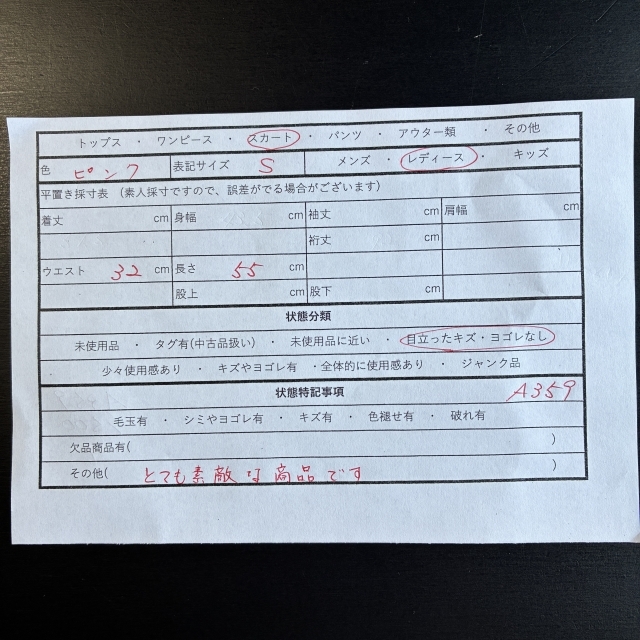 トップス ・ ワンピース ・ スカート ・ パンツ ・ アウター類 ・ その他
色 ピンク 表記サイズ S メンズ ・ レディース ・ キッズ
平置き採寸表 (素人採寸ですので、誤差がでる場合がございます)
着丈 cm 身幅 cm 袖丈 cm 肩幅 cm
裄丈 cm
ウエスト 32 cm 長さ 55 cm
股上 cm 股下 cm
状態分類
未使用品 ・ タグ有(中古品扱い) ・ 未使用品に近い ・ 目立ったキズ・ヨゴレなし
少々使用感あり ・ キズやヨゴレ有 ・全体的に使用感あり ・ ジャンク品
状態特記事項 A359
毛玉有 ・ シミやヨゴレ有 ・ キズ有 ・ 色褪せ有 ・ 破れ有
欠品商品有( )
その他( とても素敵な商品です )